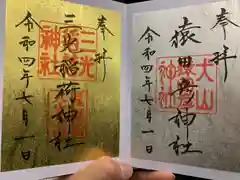 奉拝
三光稲荷神社
三光神社
令和四年七月一日
奉拝
猿田彦神社
犬山
神社
令和四年七月一日